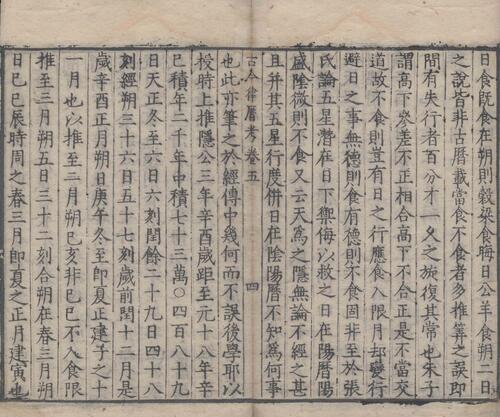 日食既食在朔則穀梁食晦日公羊食二日
之說皆非古曆載當食不食者多推筭之誤即
間有失行者百分才一久之旋復其常也朱子
謂高下衮差不正相合高下不合正是不當交
道故不食則豈有日之行應食入限月却變行
避日之事無德則食有德則不食固非至於張
氏論五星潛在日下禦侮以救之日在陽曆陽
盛陰微則不食又云天為之隱無論不經之甚
且并其五星行度併日在陰陽曆不知為何事
古今律曆考卷五 四
也此亦筆之於經傳中幾何而不誤後學耶以
授時上推隱公三年辛酉歲距至元十八年辛
巳積年二千年中積七十三萬〇四百八十九
日天正冬至六日六刻閏餘二十九日四十八
刻經朔三十六日五十七刻歲前閏十二月是
歲辛酉正月朔日庚午冬至即夏正建子之十
一月也以推至三月朔己亥非己巳不入食限
推至三月朔五日三十二刻合朔在春三月朔
日己巳辰時周之春三月即夏之正月建寅也